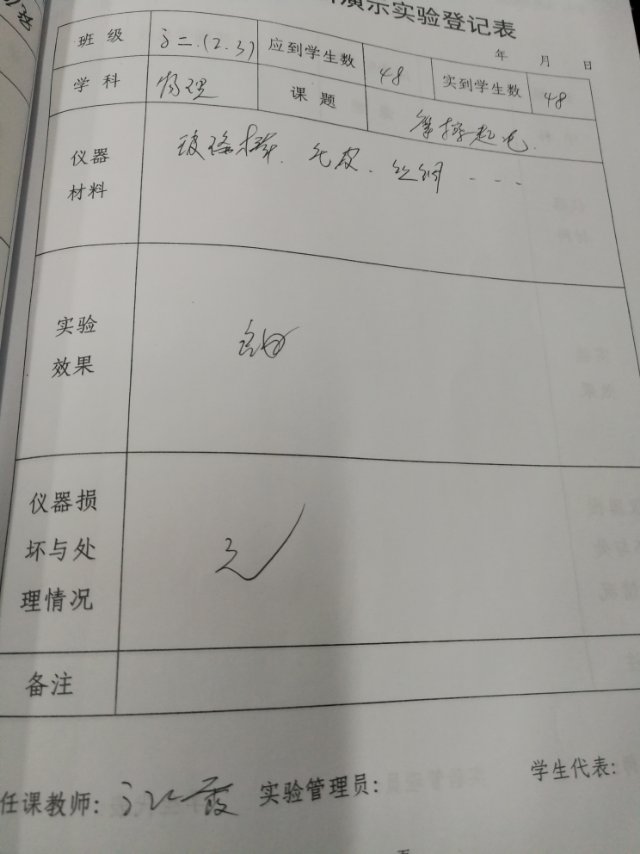 演示实验登记表
年 月 日
班级 高二.(2.3) 应到学生数 48 实到学生数 48
学科 物理 课题 摩擦起电.
仪器 玻璃棒. 毛皮. 丝绸 . - - -
材料
实验
效果
仪器损
坏与处 无
理情况
备注
任课教师: 实验管理员: 学生代表: